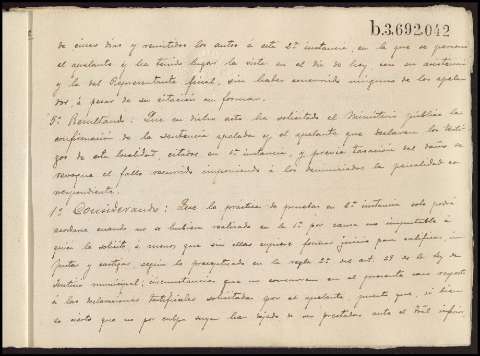 b.3.692.042
de cinco dias y remitidos los autos á esta 2ª instancia, en la que se personó
el apelante y ha tenido lugar la vista en el día de hoy con su asistencia
y la del Representante fiscal, sin haber concurrido ninguno de los apela-
dos, á pesar de su citación en forma.
5º Resultando: Que en dicho acto ha solicitado el Ministerio público la
confirmación de la sentencia apelada y el apelante que declaren los testi-
gos de esta localidad, citados en 1ª instancia, y previa tasación del daño se
revoque el fallo recurrido imponiendo á los denunciados la penalidad co-
rrespondiente.
1º Considerando: Que la práctica de pruebas en 2ª instancia solo podrá
acordarse cuando no se hubiera realizado en la 1ª por causa no imputable á
quien la solicite, á menos que sin ellas no pueda formar juicio para calificar, im-
putar y castigar, según lo preceptuado en la regla 2ª del art. 29 de la ley de
Justicia municipal, circunstancias que no concurren en el presente caso respecto
á las declaraciones testificales solicitadas por el apelante, puesto que, si bien
es cierto que no por culpa suya han dejado de ser prestadas ante el Tral inferior,